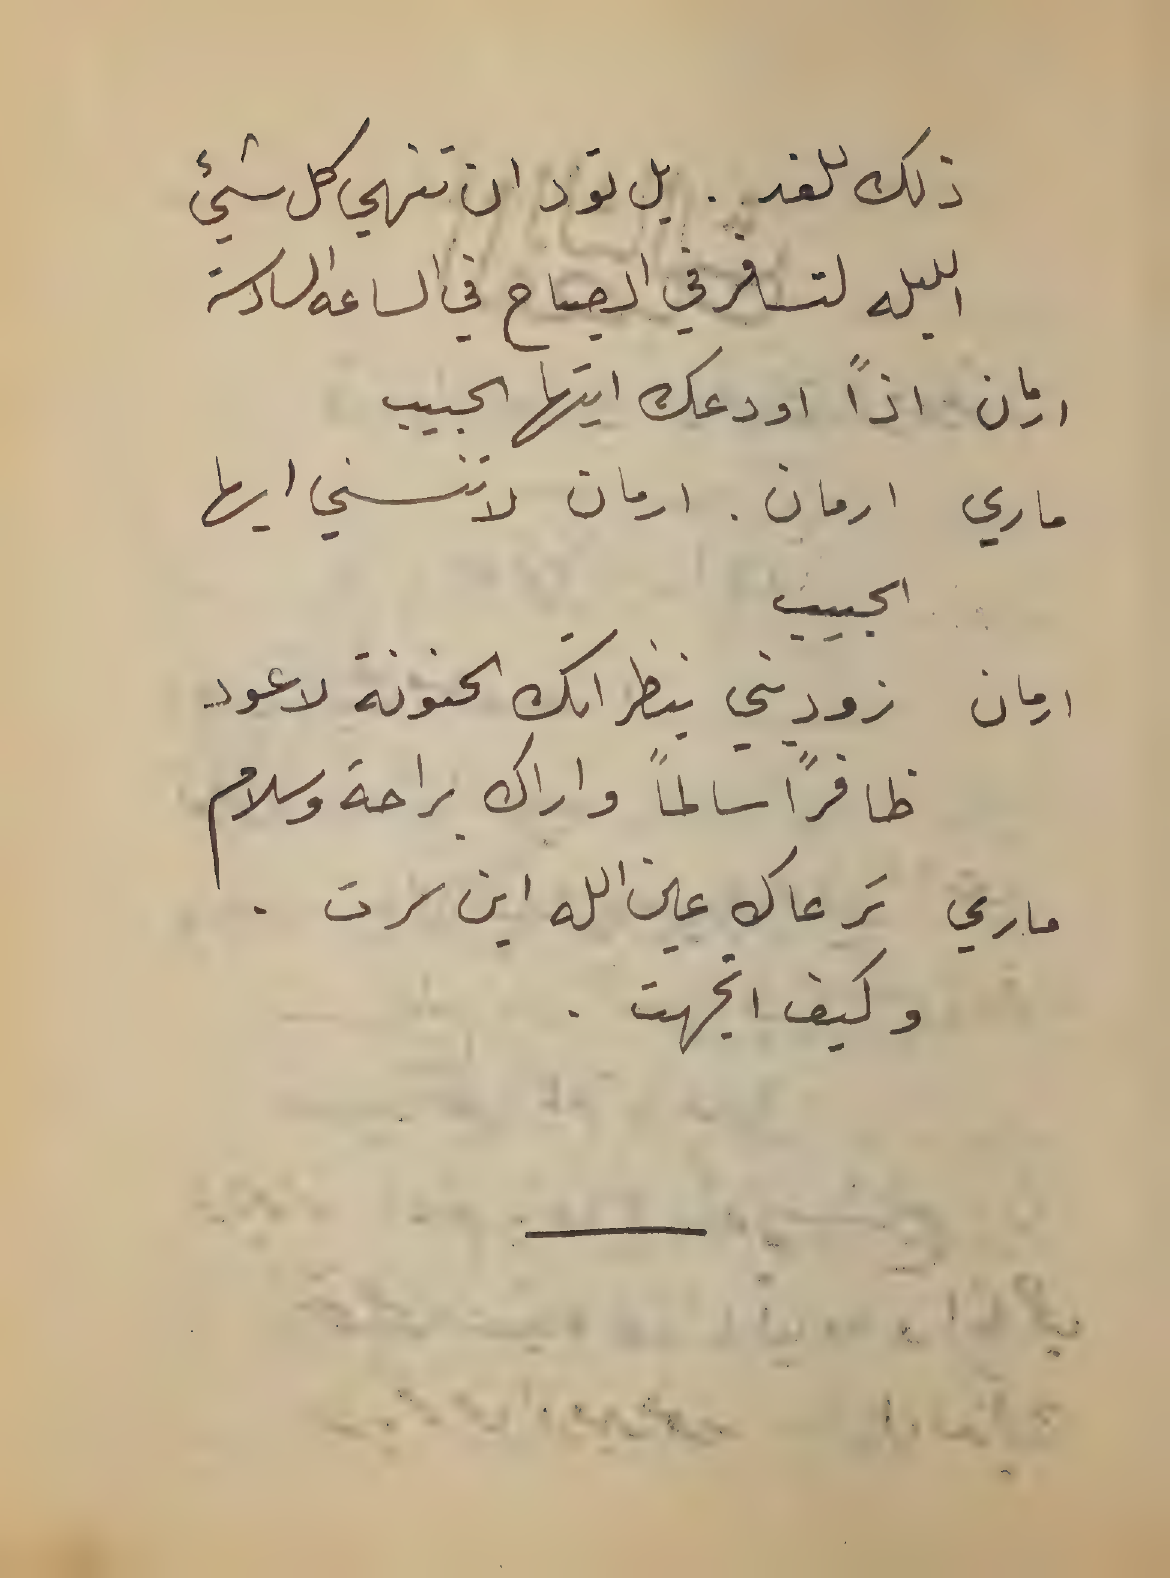 ذلك للغد . بل تود ان تنهي كل شيئ
الليله لتسافر في الصباح في الساعه السادسة
ارمان اذاً اودعك ايتها الحبيب
ماري ارمان . ارمان لا تنسني ايها
الحبيب
ارمان زوديني بنظراتك الحنونة لاعود
ظافراً سالماً واراك براحة وسلام
ماري ترعاك عين الله اين سرت .
وكيف اتجهت .